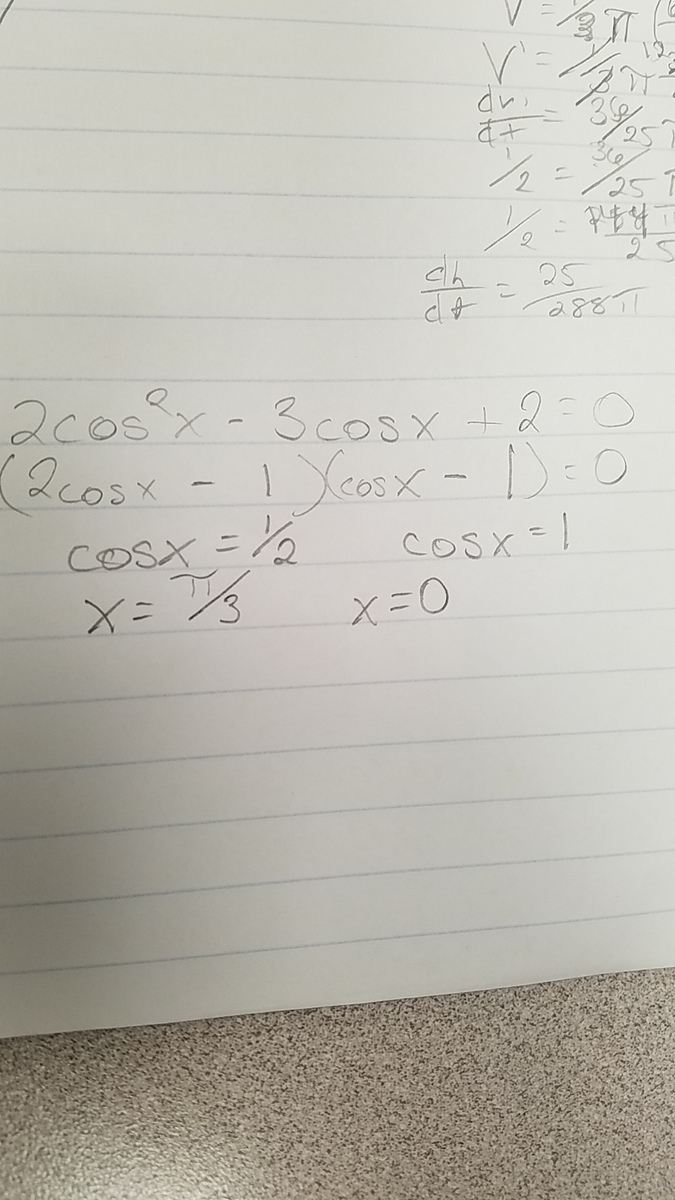 V = 1/3 π (
V' = 1/3 π
dv/dt = 36/25 π
1/2 = 36/25 π
1/2 = π/25
dh/dt = 25/288π
2cos²x - 3cosx + 2 = 0
(2cosx - 1)(cosx - 1) = 0
cosx = 1/2 cosx = 1
x = π/3 x = 0